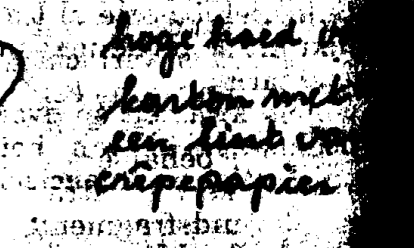 hoge hoed v
karton met
een lint vo
crêpepapier